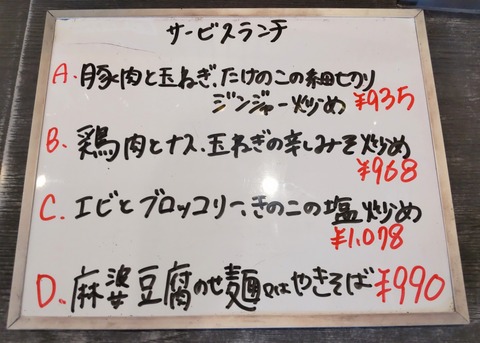 サービスランチ
A. 豚肉と玉ねぎ、たけのこの細切り
ジンジャー炒め ¥935
B. 鶏肉とナス、玉ねぎの辛しみそ炒め
¥968
C. エビとブロッコリー、きのこの塩炒め
¥1,078
D. 麻婆豆腐のせ麺 又はやきそば ¥990